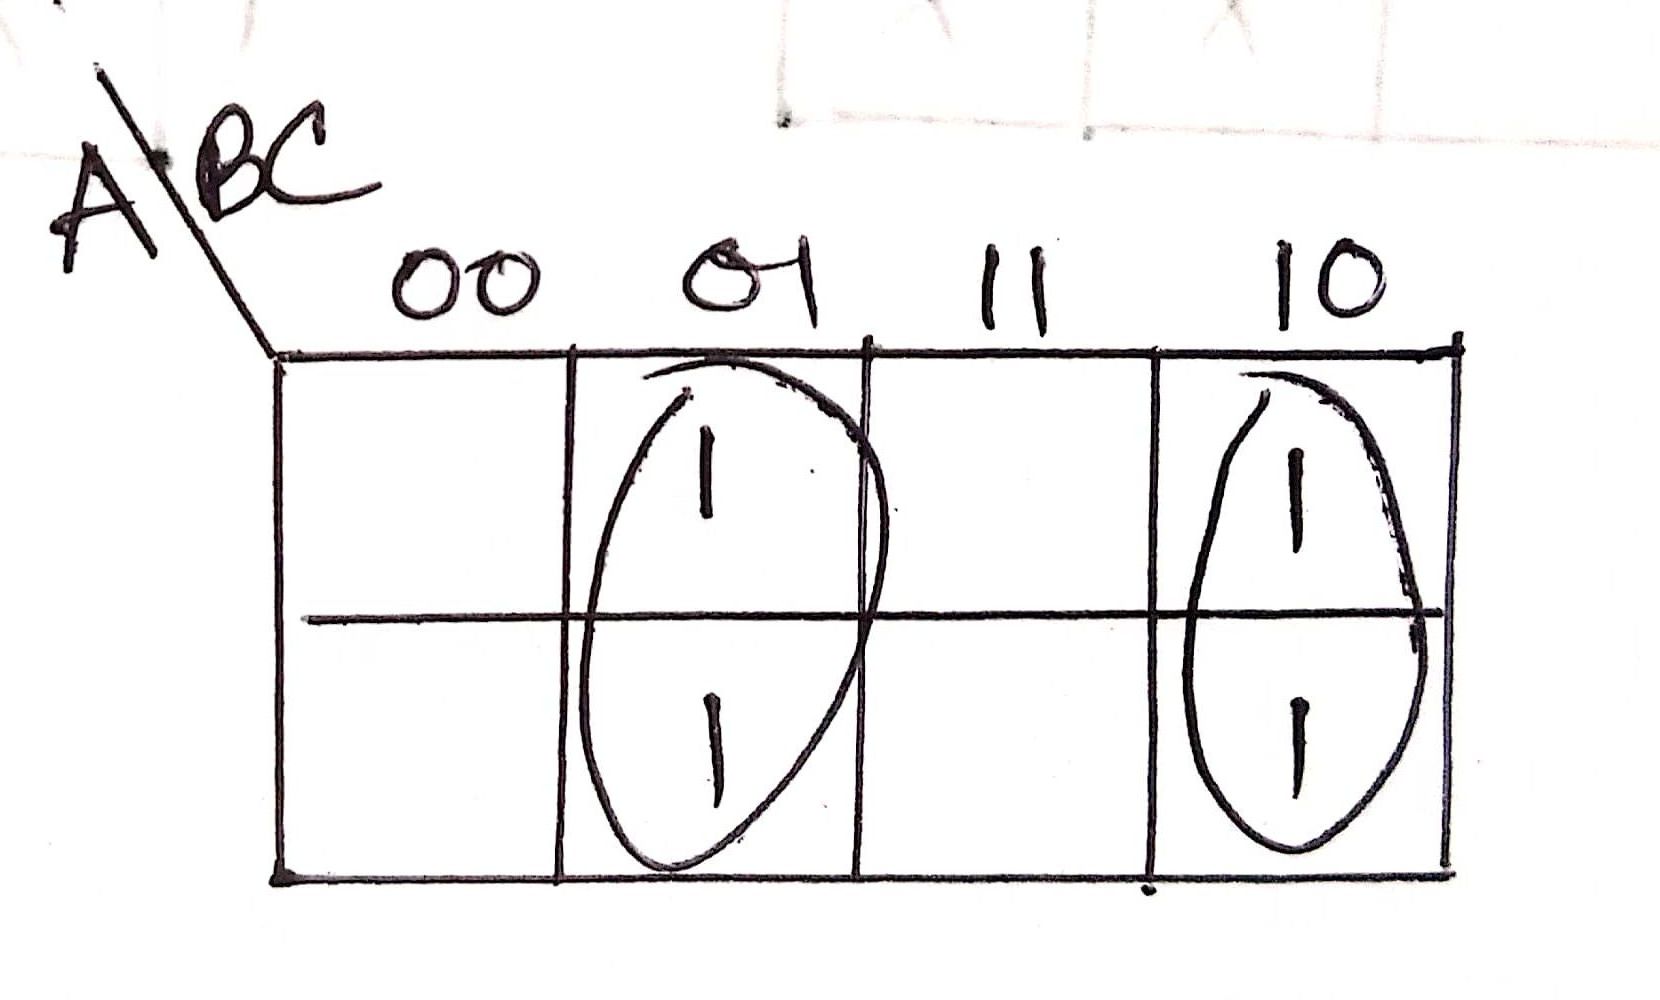 A\BC
00 01 11 10
1 1
1 1